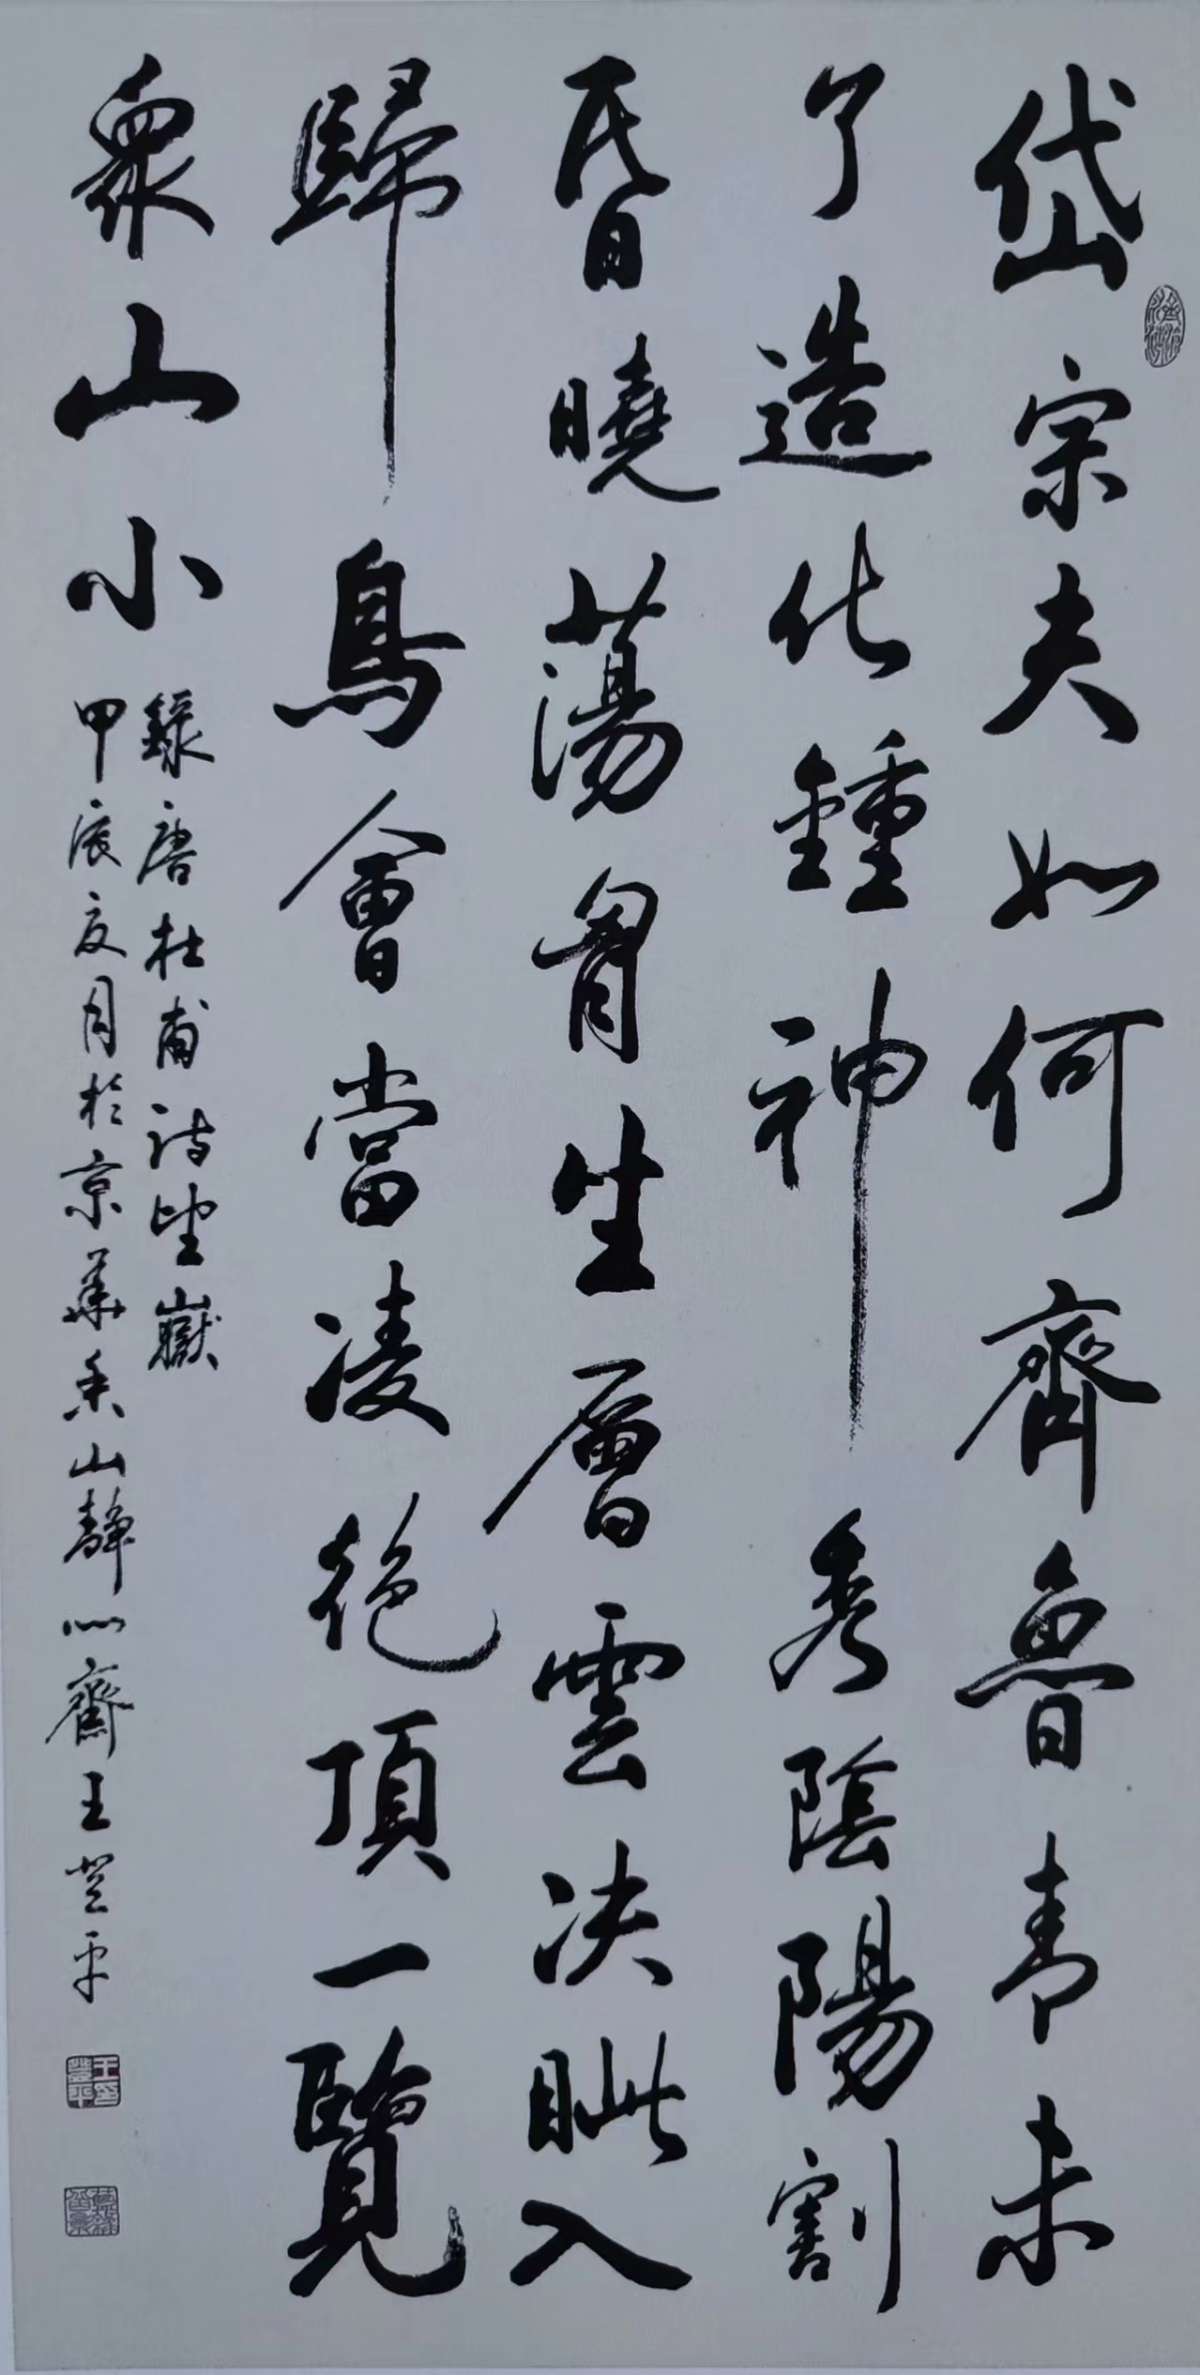 岱宗夫如何齊魯青未
了造化鍾神秀陰陽割
昏曉蕩胷生層雲决眦入
歸鳥會當凌絶頂一覽
衆山小
錄唐杜甫詩望嶽
甲辰夏月於京華香山靜心齋王登平
王印登平